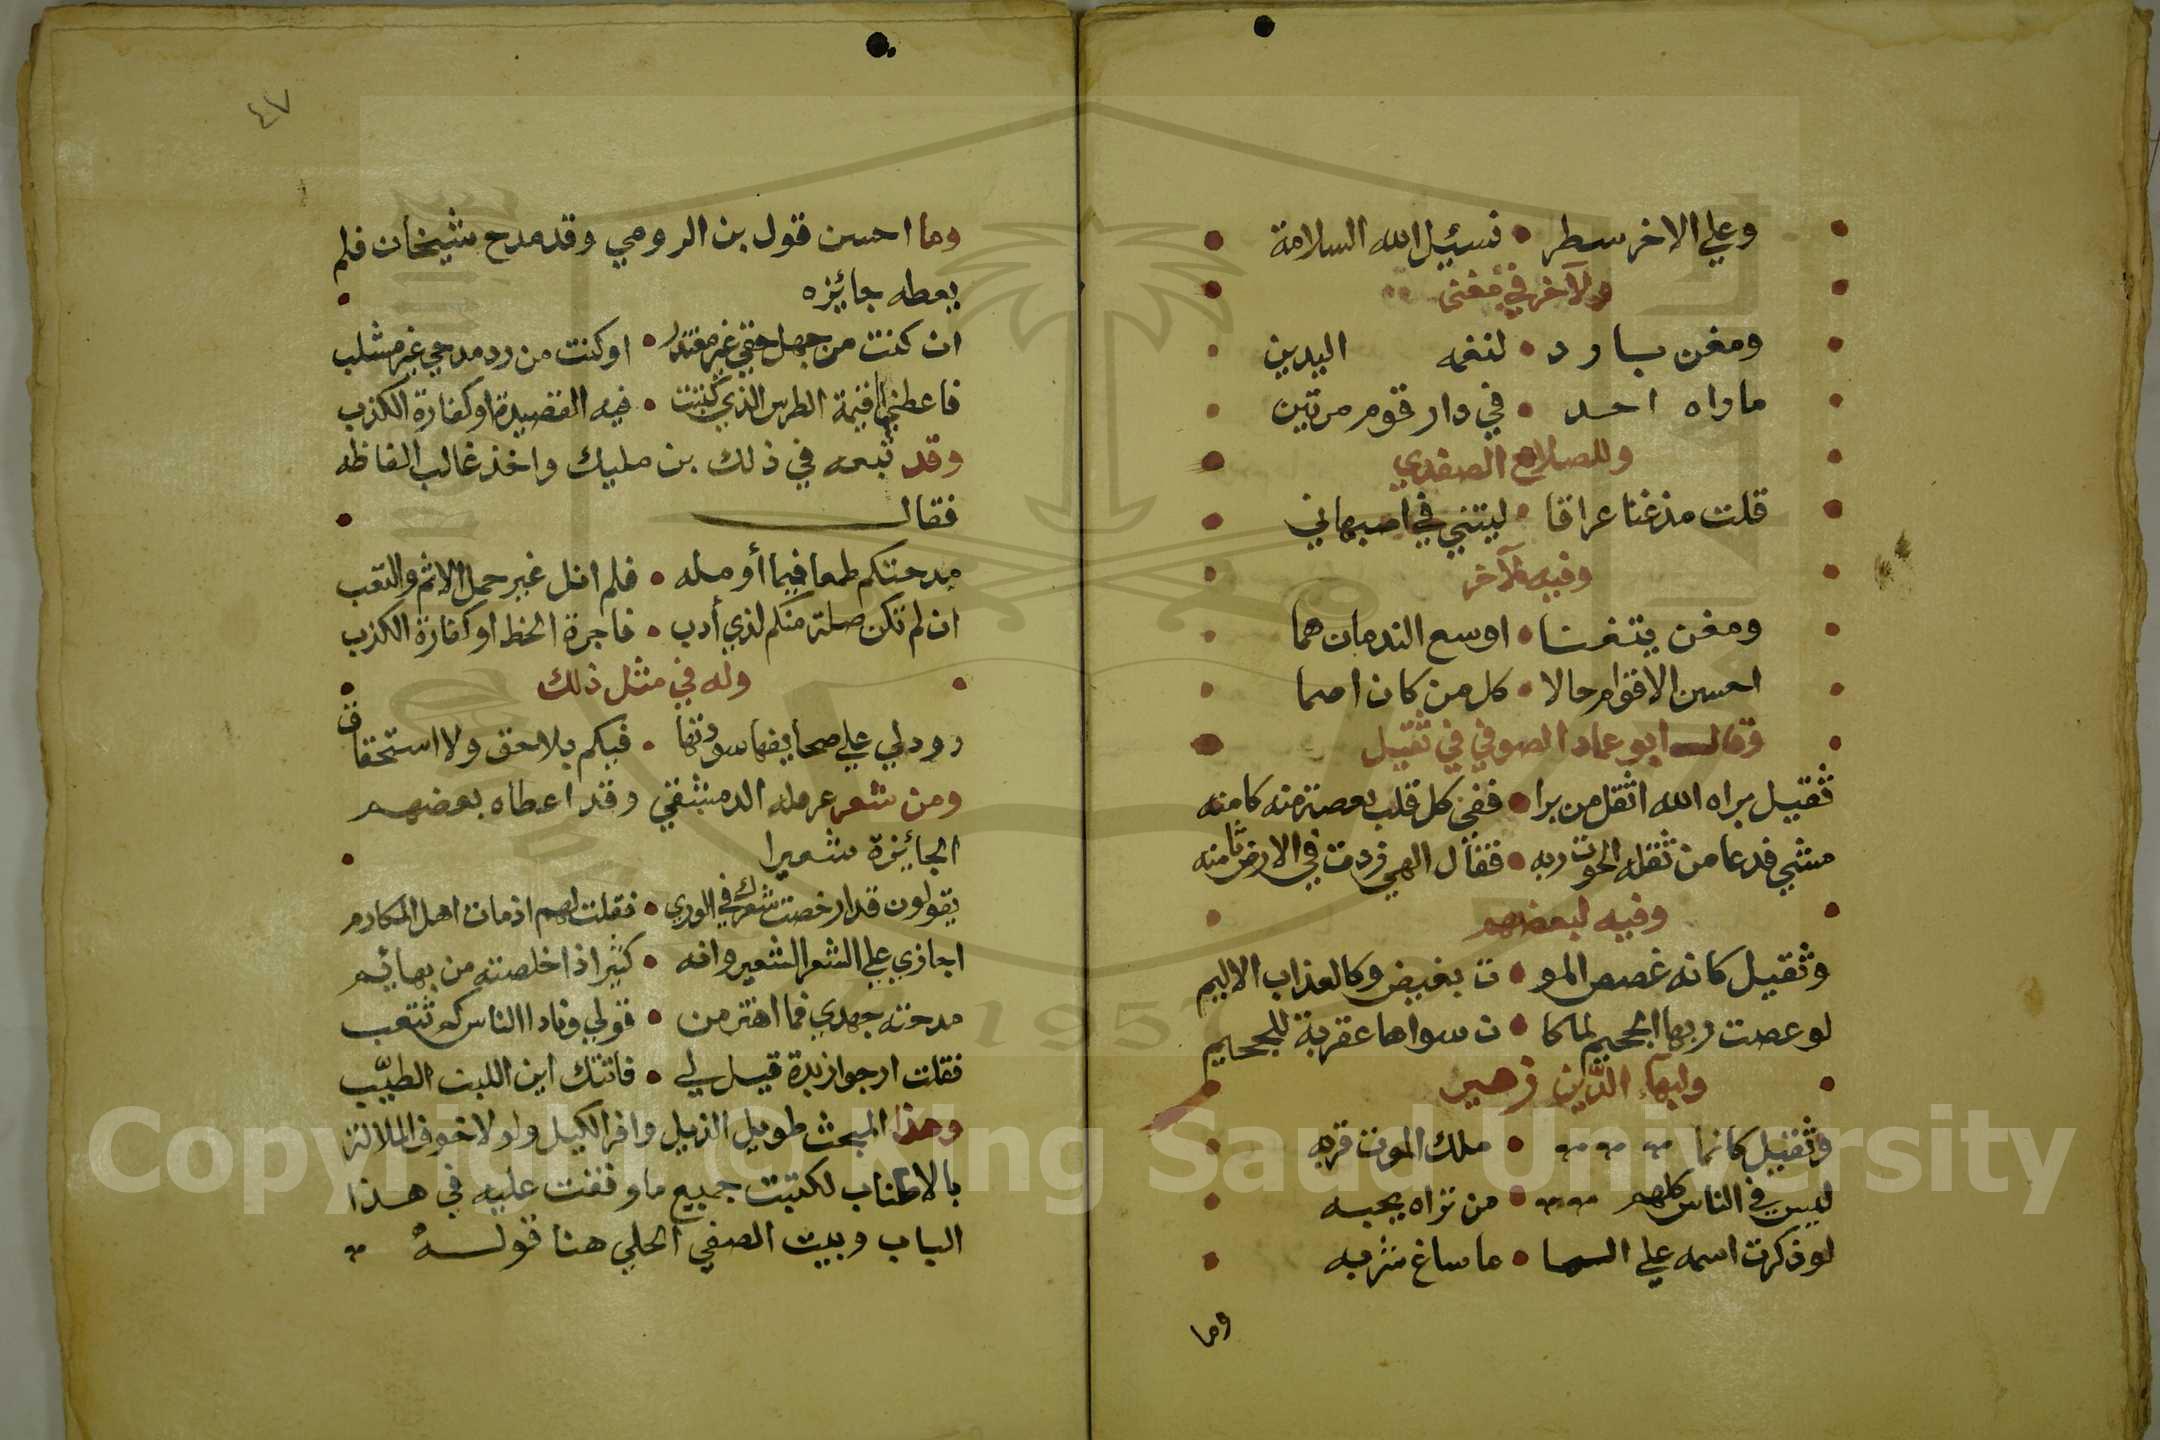 وعلي الاخر سطر • نسئيل الله السلامة
ولآخر في مغنى
ومغن بارد • لنغمه اليدين
ماراه احد • في دار قوم مرتين
وللصلاح الصفدي
قلت مذ غنا عراقا • ليتني في اصبهاني
وفيه لآخر
ومغن يتغنا • اوسع الندمان هما
احسن الاقوام حالا • كل من كان اصما
وقال ابو عماد الصوفي في ثقيل
ثقيل براه الله اثقل من برا • ففي كل قلب بعصة منه كامنه
مشي فدعا من ثقله الحوت ربه • فقال الهي زدت في الارض ثامنه
وفيه لبعضهم
وثقيل كانه غصص المو • ت بغيض وكالعذاب الاليم
لو عصت ربها الجحيم لما كا • ن سواها عقربة للجحيم
ولبهآء الدين زهير
وثقيل كانما • ملك الموت قربه
ليس في الناس كلهم • من تراه يحبه
لو ذكرت اسمه علي السما • ما ساغ شربه
وما
٤٧
وما احسن قول بن الرومي وقد مدح شيخان فلم
يعطه جائيزه
ان كنت من جهل حقي غير معتذر • او كنت من رد مدحي غير مثلب
فاعطني قيمة الطرس الذي كتبت • فيه القصيدة او كفارة الكذب
وقد تبعه في ذلك بن مليك واخذ غالب الفاظه
فقال
مدحتكم طمعا فيما أومله • فلم انل غير حمل الاثم والتعب
ان لم تكن صلة منكم لذي أدب • فاجرة الخط او كفارة الكذب
وله في مثل ذلك
ردو لي علي صحايفها سودتها • فيكم بلا حق ولا استحقاق
ومن شعر عرمله الدمشقي وقد اعطاه بعضهم
الجائيزة شعيرا
يقولون قد ارخصت شعرك في الوري • فقلت لهم اذ مات اهل المكارم
اجازي علي الشعر الشعير وانه • كثير اذا خلصته من بهائيم
مدحته جهدي فما اهتز من • قولي ونادا الناس كم تتعب
فقلت ارجوا زبدة قيل لي • فاتتك اين اللبن الطيّب
وهذا المبحث طويل الذيل وافر الكيل ولولا خوف الملالة
بالاطناب لكتبت جميع ما وقفت عليه في هذا
الباب وبيت الصفي الحلي هنا قوله
Copyright © King Saud University
1957